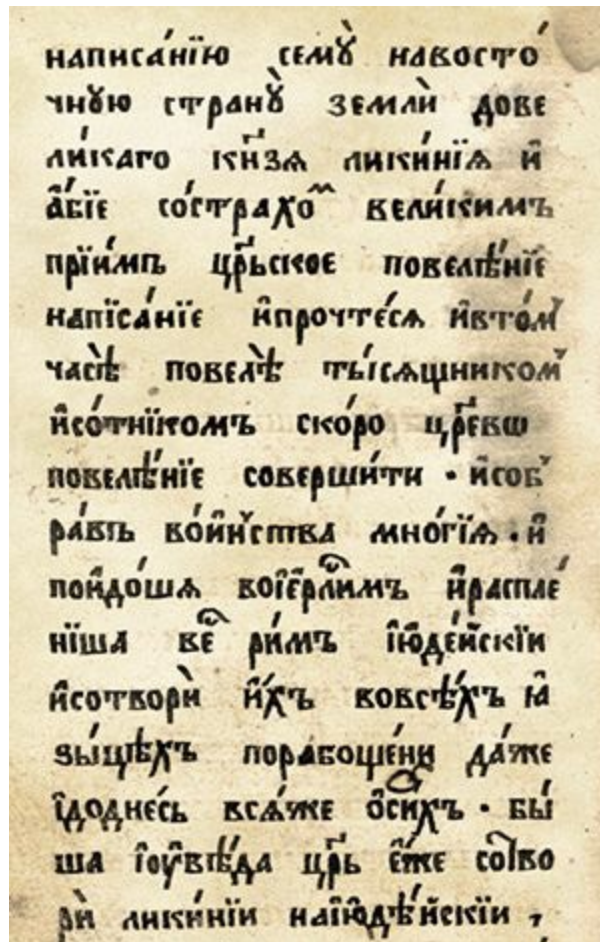 написа́нїю семꙋ̀ навосто́
чнꙋ́ю странꙋ̀ землѝ дове
ли́каго кн҃зѧ лики́нїѧ и҆
а҆́бїе со́страхоⷨ вели́кимъ
прїи́мъ цр҃ьское повелѣ́нїе
написа́нїе и҆прочте́сѧ и҆вто́м̾
часѣ̀ повелѣ̀ ты́сѧщником̾
и҆со́тнїкомъ ско́ро цр҃евш
повелѣ́нїе соверши́ти · и҆соб̾
ра́въ во́и҆нства мно́гїѧ · и҆
пои҆до́шѧ воїе҆рⷭ҇ли́мъ и҆распле́
нїша веⷭ҇ ри́мъ і҆ю҆де́йскїи
и҆сотворѝ и҆́хъ вовсѣ́хъ ꙗ҆
зы́цѣхъ порабоще́ни да́же
їдодне́сь всѧ́же ѻ҆си́хъ · бы́
ша їоу҆вѣ́да цр҃ь є҆́же соⷮво
рѝ лики́нїи наїю҆дѣ́йскїи ,